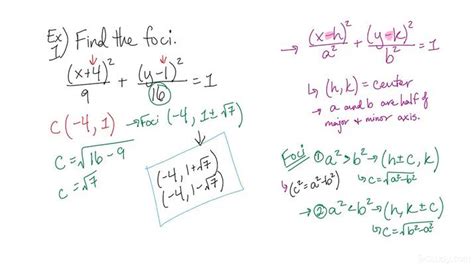 Ex 1) Find the foci.
(x+4)²/9 + (y-1)²/16 = 1
C(-4, 1) → Foci (-4, 1±√7)
c = √16-9
c = √7
(-4, 1+√7)
(-4, 1-√7)
→ (x-h)²/a² + (y-k)²/b² = 1
↳ (h, k) = center
→ a and b are half of
major + minor axis.
Foci ① a² > b² → (h±c, k)
↳ (c² = a²-b²) ↳ c = √a²-b²
→ ② a² < b² → (h, k±c)
↳ c = √b²-a²